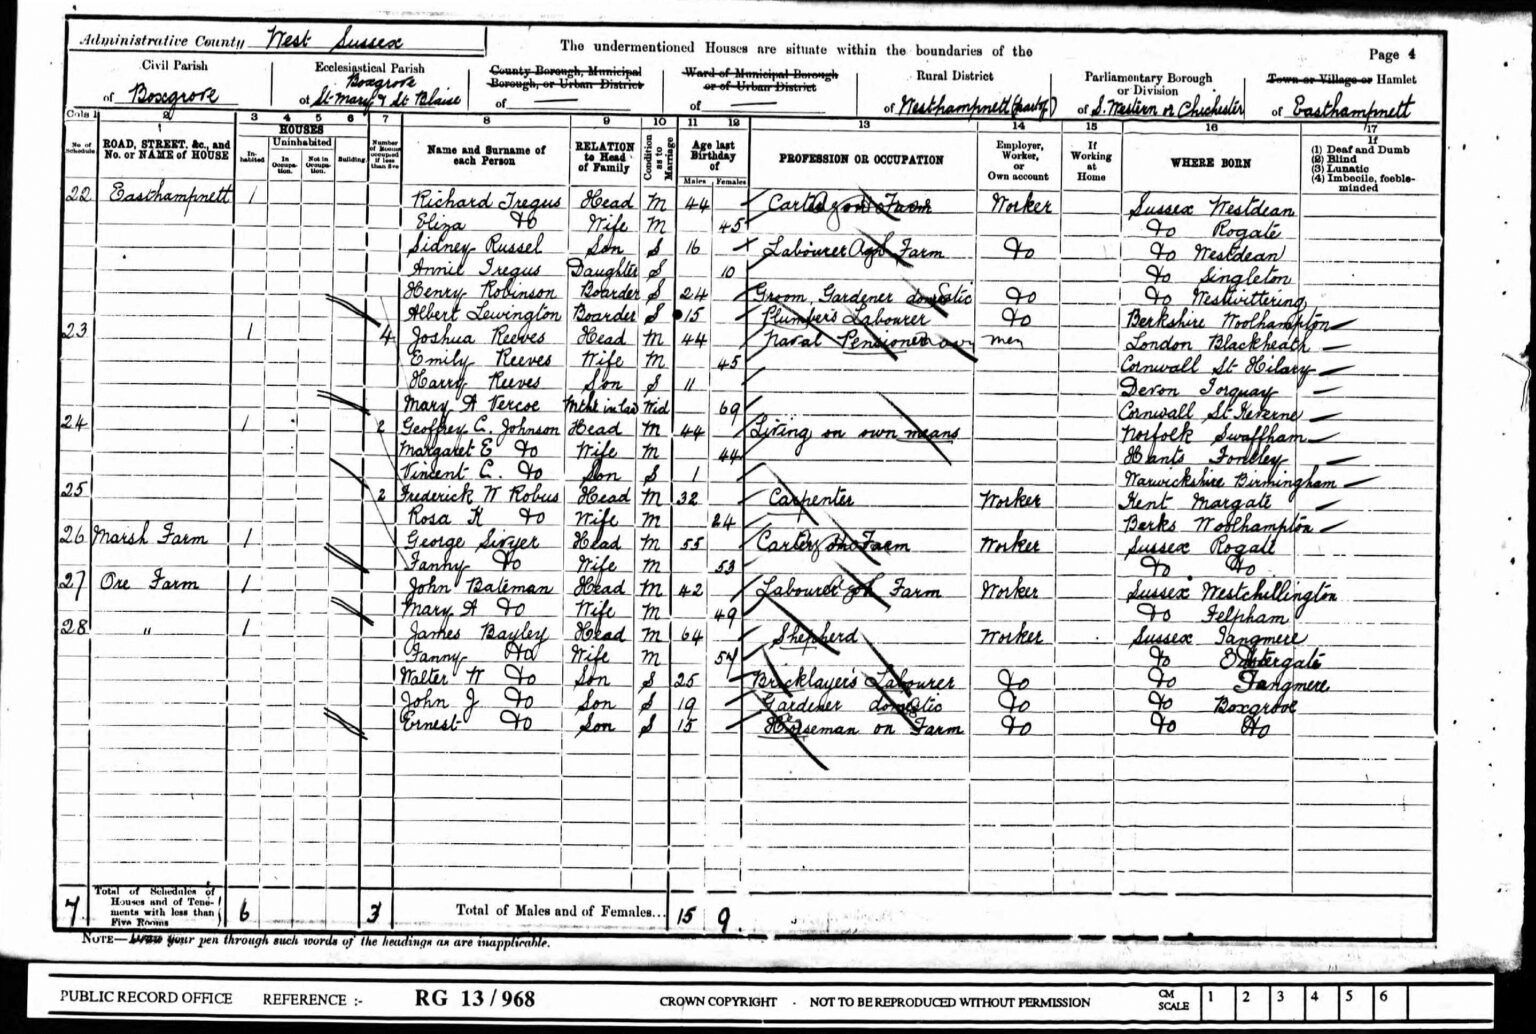 Administrative County West Sussex
The undermentioned Houses are situate within the boundaries of the
Page 4
Civil Parish
of Boxgrove
Ecclesiastical Parish
Boxgrove
of St Mary & St Blaise
County Borough, Municipal
Borough, or Urban District
of —
Ward of Municipal Borough
or of Urban District
of —
Rural District
of Westhampnett (part of)
Parliamentary Borough
or Division
of S. Western or Chichester
Town or Village or Hamlet
of Easthampnett
Cols 1 2 3 4 5 6 7 8 9 10 11 12 13 14 15 16 17
No. of Schedule
ROAD, STREET, &c., and No. or NAME of HOUSE
HOUSES
Inhabited
Uninhabited
In Occupation.
Not in Occupation.
Building
Number of Rooms occupied if less than five
Name and Surname of each Person
RELATION to Head of Family
Condition as to Marriage
Age last Birthday of
Males Females
PROFESSION OR OCCUPATION
Employer, Worker, or Own account
If Working at Home
WHERE BORN
If
(1) Deaf and Dumb
(2) Blind
(3) Lunatic
(4) Imbecile, feeble-minded
22 Easthampnett 1 Richard Tregus Head M 44 Carter on Farm Worker Sussex Westdean
Eliza Do Wife M 45 Do Rogate
Sidney Russel Son S 16 Labourer Farm Do Do Westdean
Annie Tregus Daughter S 10 Do Singleton
Henry Robinson Boarder S 24 Groom Gardener domestic Do Do Westwittering
Albert Lewington Boarder S 15 Plumber's Labourer Do Berkshire Woolhampton
23 1 4 Joshua Reeves Head M 44 Naval Pensioner London Blackheath
Emily Reeves Wife M 45 Cornwall St Hilary
Harry Reeves Son S 11 Devon Torquay
Mary A Vercoe Mthr in law Wid 69 Cornwall St Keverne
24 1 2 Geoffrey C. Johnson Head M 44 Living on own means Norfolk Swaffham
Margaret E Do Wife M 44 Hants Fontley
Vincent C. Do Son S 1 Warwickshire Birmingham
25 2 Frederick W Robus Head M 32 Carpenter Worker Kent Margate
Rosa K Do Wife M 24 Berks Woolhampton
26 Marsh Farm 1 George Sivyer Head M 55 Carter on Farm Worker Sussex Rogate
Fanny Do Wife M 53 Do Do
27 Ore Farm 1 John Bateman Head M 42 Labourer on Farm Worker Sussex Westchillington
Mary A Do Wife M 49 Do Felpham
28 " 1 James Bayley Head M 64 Shepherd Worker Sussex Tangmere
Fanny Do Wife M 57 Do
Walter W Do Son S 25 Bricklayer's Labourer Do Do Tangmere
John J Do Son S 19 Gardener domestic Do Do Boxgrove
Ernest Do Son S 15 Horseman on Farm Do Do Do
7 Total of Schedules of Houses and of Tenements with less than Five Rooms 6 3 Total of Males and of Females... 15 9
NOTE—Draw your pen through such words of the headings as are inapplicable.
PUBLIC RECORD OFFICE REFERENCE :- RG 13/968 CROWN COPYRIGHT - NOT TO BE REPRODUCED WITHOUT PERMISSION CM SCALE 1 2 3 4 5 6